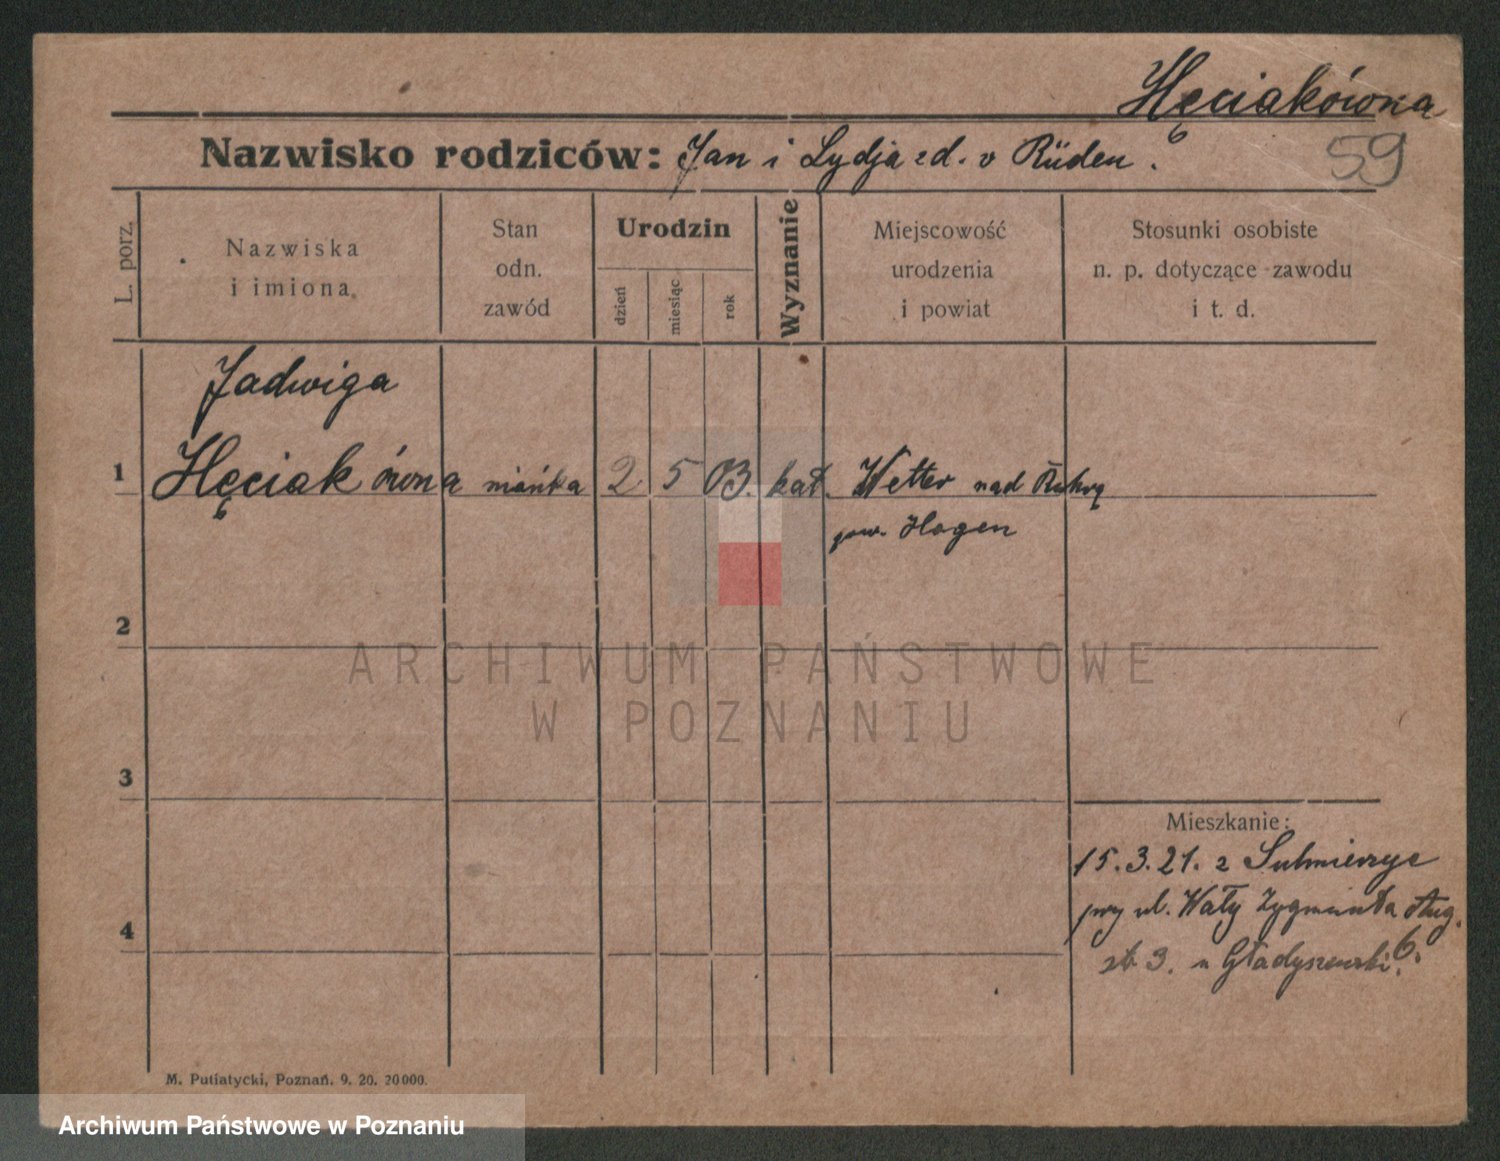 Hęciakówna
59
Nazwisko rodziców: Jan i Lydja zd. v Rüden.
L. porz.
Nazwiska
i imiona
Stan
odn.
zawód
Urodzin
dzień
miesiąc
rok
Wyznanie
Miejscowość
urodzenia
i powiat
Stosunki osobiste
n. p. dotyczące zawodu
i t. d.
Jadwiga
1 Hęciakówna niańka 2. 5 03. kat. Wetter nad Ruhrą
pow. Hagen
2
ARCHIWUM PAŃSTWOWE
W POZNANIU
3
Mieszkanie:
15.3.21. z Sulmierzyc
przy ul. Wały Zygmunta Aug.
4
3. u Gładyszewski
M. Putiatycki, Poznań. 9. 20. 20000.
Archiwum Państwowe w Poznaniu